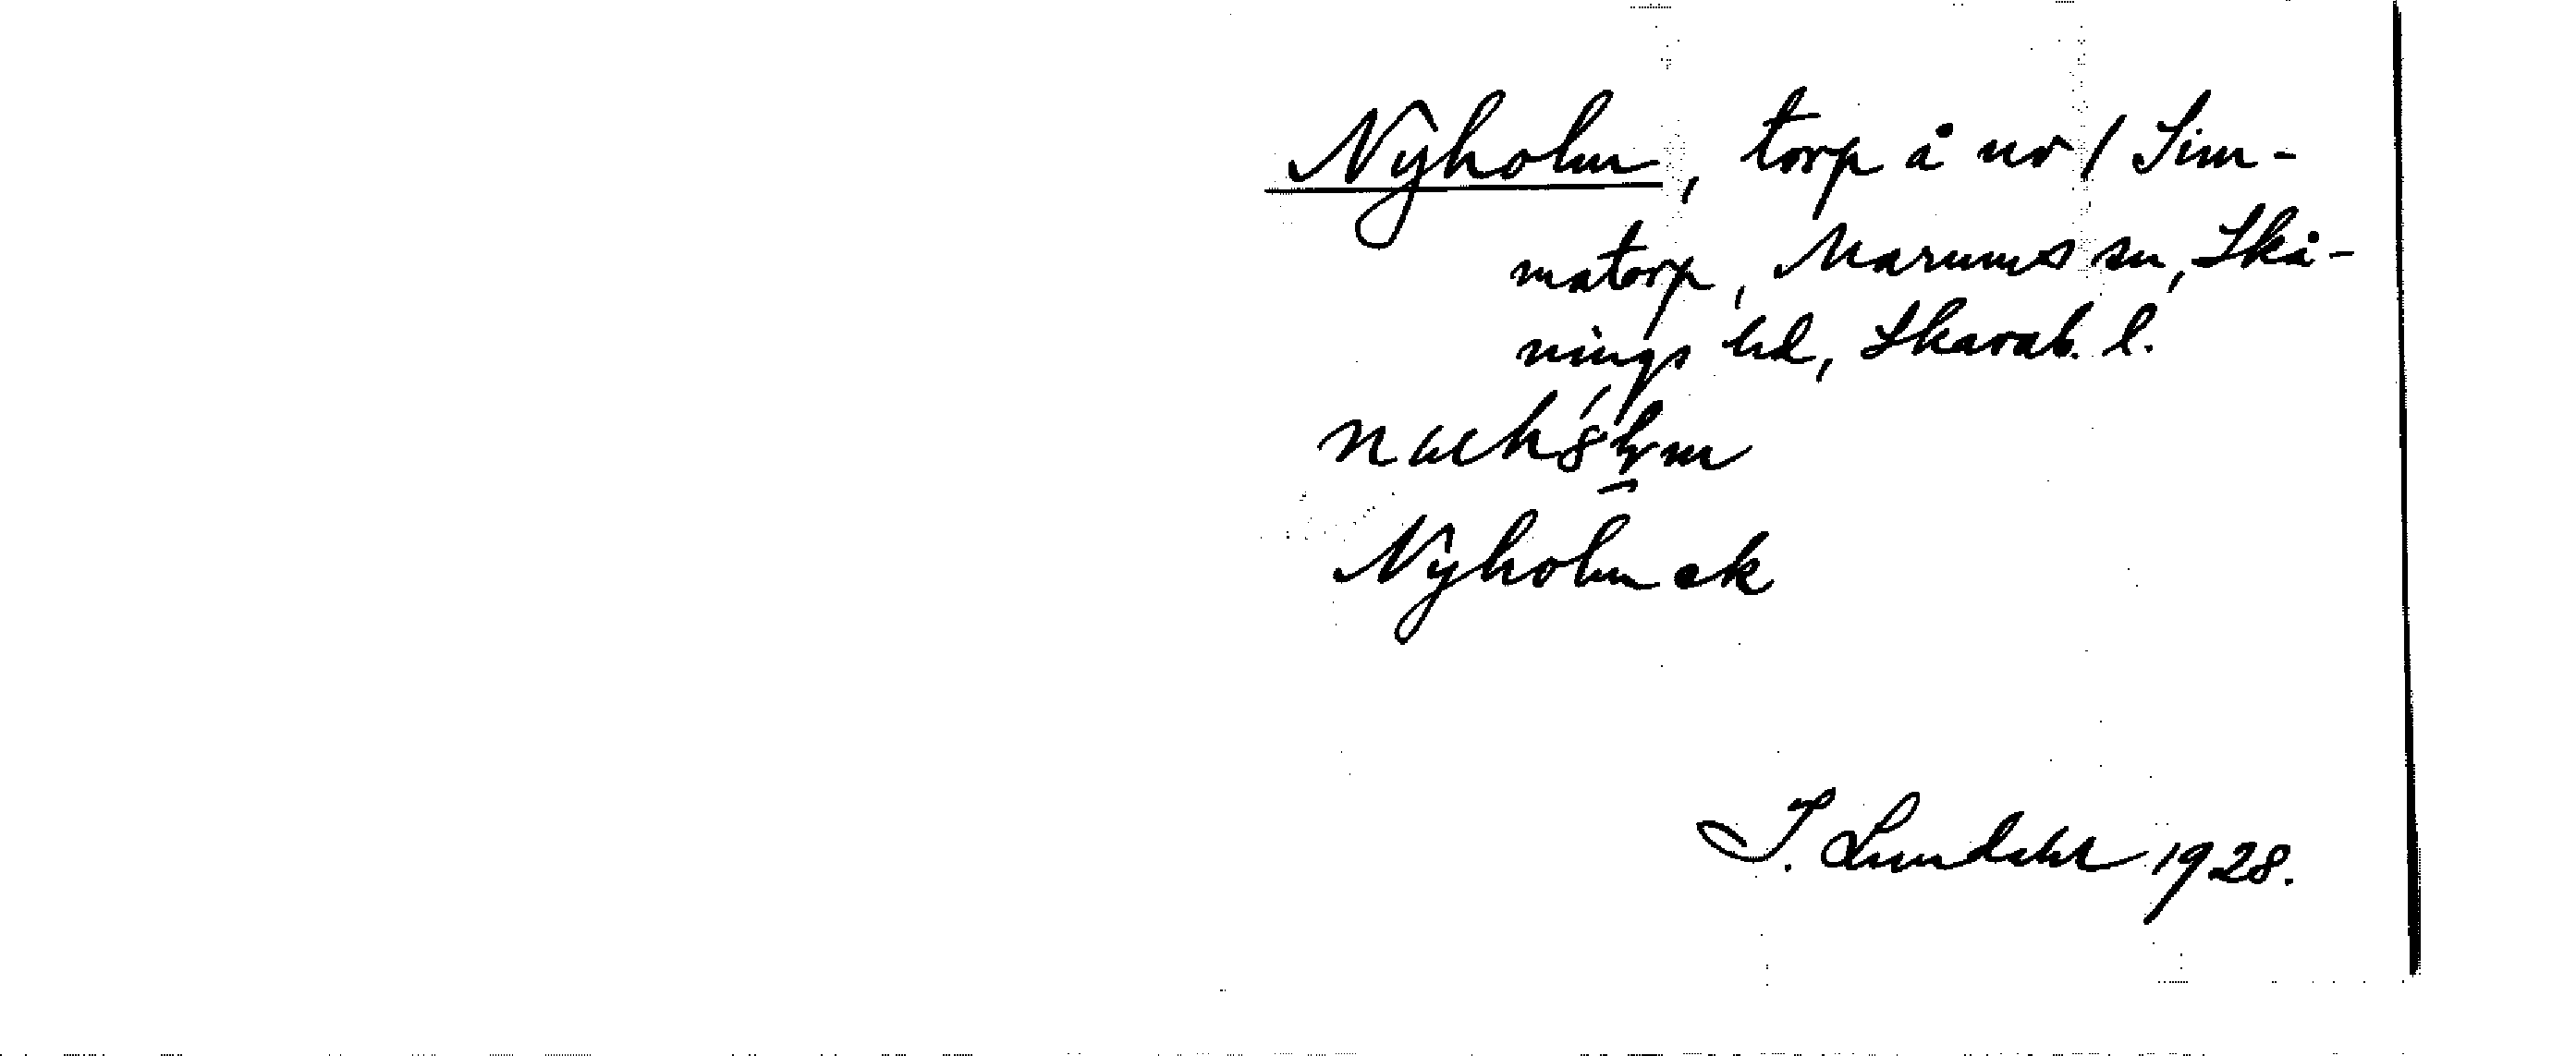 Nyholm, torp å nr 1 Sim-
matorp, Marums sn, Skå-
nings hd, Skarab. l.
Nyholm ek
I. Lundahl 1928.